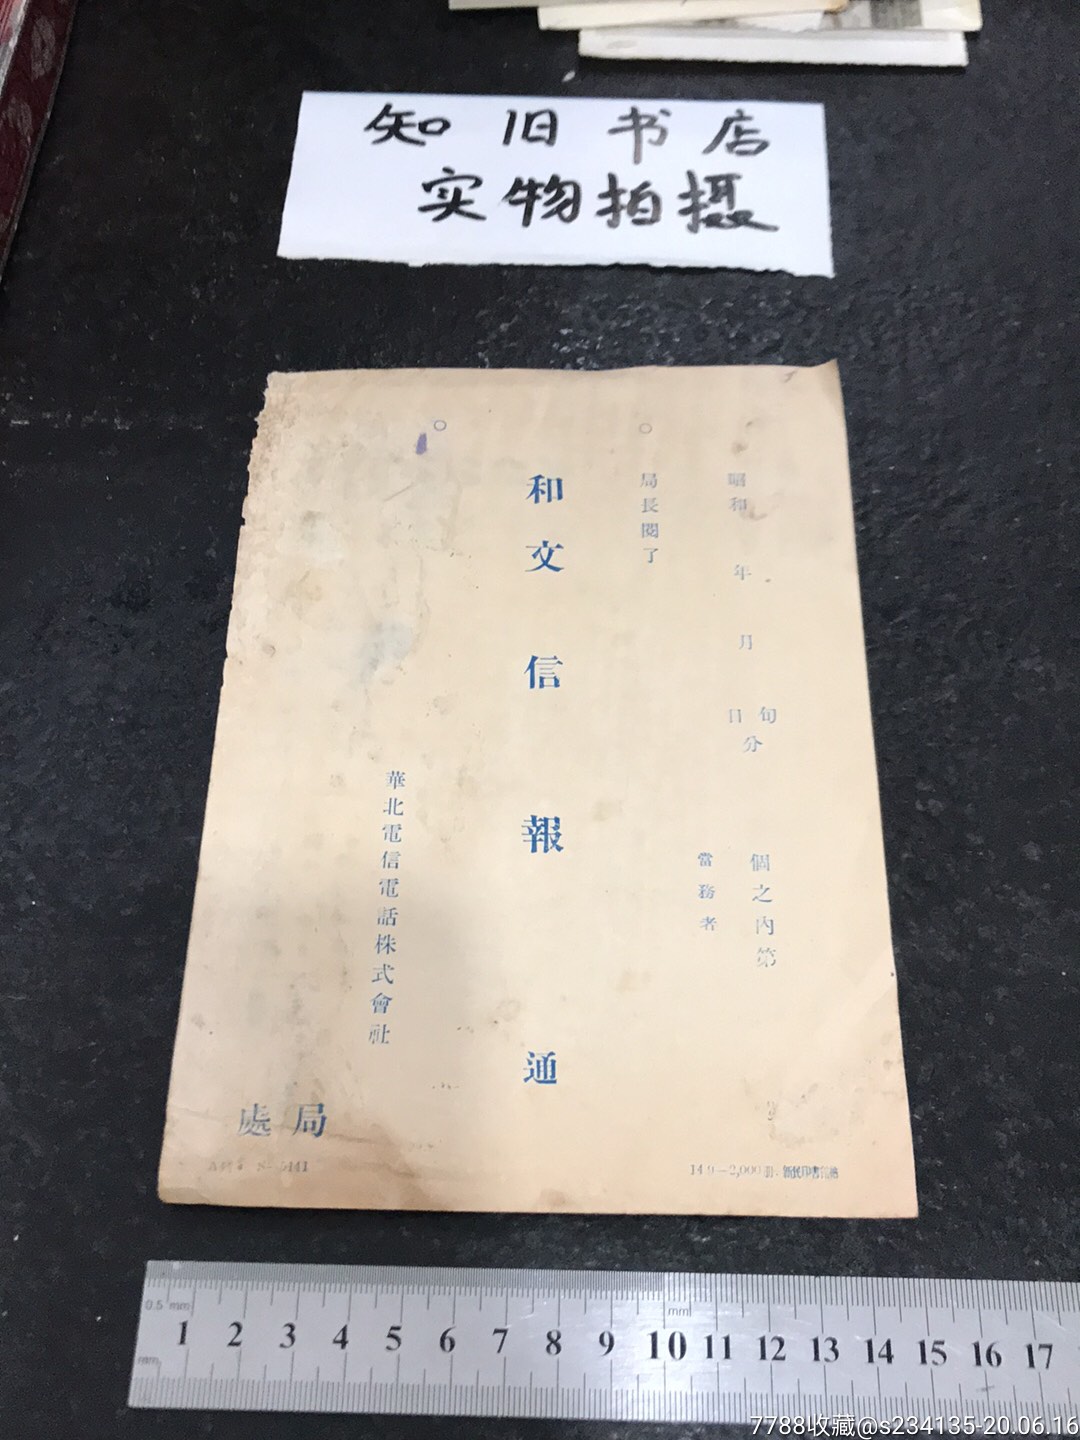 知旧书店
实物拍摄
昭和 年 月 旬日分
個之內第
當務者
○局長閱了
和文信報通
○
華北電信電話株式會社
局處
5441
14.9—2,000
0.5 mm
mm
mm
1 2 3 4 5 6 7 8 9 10 11 12 13 14 15 16 17
7788收藏@s234135-20.06.16